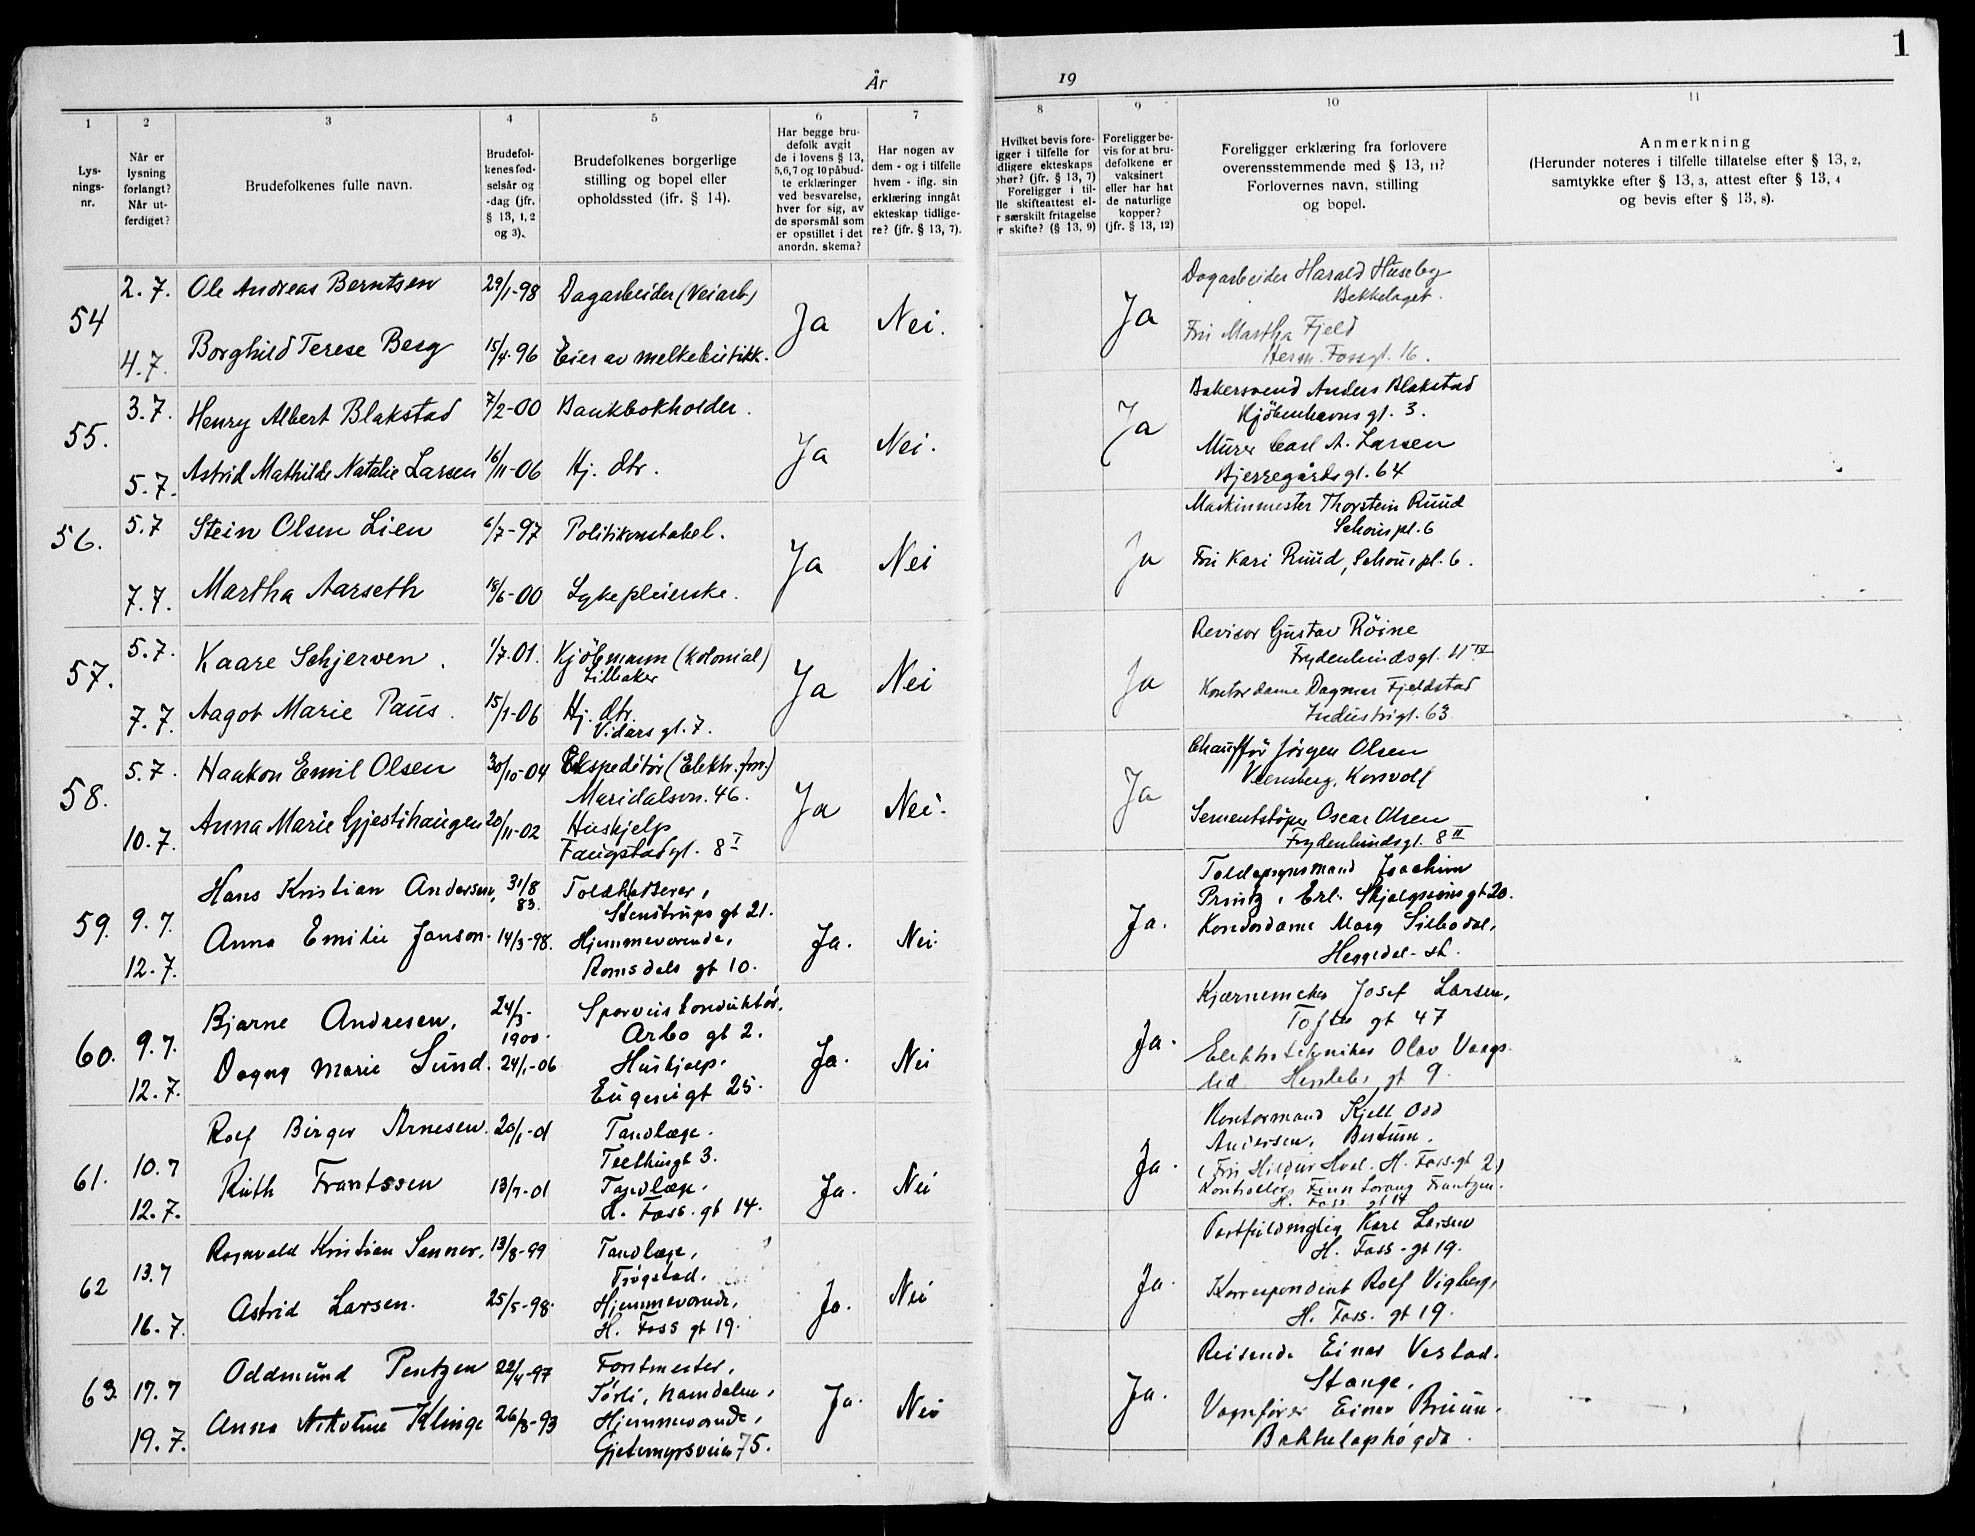 1
År
19
1
2
3
4
5
6
7
8
9
10
11
Lys-
nings-
nr.
Når er
lysning
forlangt?
Når ut-
ferdiget?
Brudefolkenes fulle navn.
Brudefol-
kenes fød-
selsår og
-dag (jfr.
§ 13, 1, 2
og 3).
Brudefolkenes borgerlige
stilling og bopel eller
opholdssted (ifr. § 14).
Har begge bru-
defolk avgit
de i lovens § 13,
5,6,7 og 10 påbud-
te erklæringer
ved besvarelse,
hver for sig, av
de spørsmål som
er opstillet i det
anordn. skema?
Har nogen av
dem - og i tilfelle
hvem - iflg. sin
erklæring inngåt
ekteskap tidlige-
re? (jfr. § 13, 7).
Hvilket bevis fore-
igger i tilfelle for
dligere ekteskaps
phør? (jfr. § 13, 7)
Foreligger i til-
lle skifteattest el-
r særskilt fritagelse
r skifte? (§ 13, 9)
Foreligger be-
vis for at bru-
defolkene er
vaksinert
eller har hat
de naturlige
kopper?
(jfr. § 13, 12)
Foreligger erklæring fra forlovere
overensstemmende med § 13, 11?
Forlovernes navn, stilling
og bopel.
Anmerkning
(Herunder noteres i tilfelle tillatelse efter § 13, 2,
samtykke efter § 13, 3, attest efter § 13, 4
og bevis efter § 13, 8).
54
2.7.
4.7.
Ole Andreas Berntsen
29/1-98
Dagarbeider (Veiarb)
Borghild Terese Berg
15/4-96
Eier av melkebutikk.
Ja
Nei.
Ja
Dagarbeider Harald Huseby
Bekkelaget.
Fru Martha Fjeld
Herm. Fossgt. 16.
55.
3.7.
5.7.
Henry Albert Blakstad
7/2-00
Bankbokholder.
Astrid Mathilde Natalie Larsen
16/11-06
Hj. dtr.
Ja
Nei.
Ja
Bakersvend Anders Blakstad
Kjöbenhavns gt. 3.
Murer Carl A. Larsen
Bjerregårds gt. 64
56.
5.7
7.7.
Stein Olsen Lien
6/7-97
Politikonstabel.
Martha Aarseth
18/6-00
Sykepleierske.
Ja
Nei
Ja
Maskinmester Thorstein Ruud
Schous pl. 6
Fru Kari Ruud, Schous pl. 6.
57.
5.7.
7.7.
Kaare Schjerven.
1/7-01.
Kjöbmann (kolonial)
Lilleaker
Aagot Marie Paus.
15/1-06
Hj. dtr.
Vidars gt. 7.
Ja
Nei
Ja
Revisor Gustav Röine
Frydenlundsgt. 11 IV
Kontordame Dagmar Fjeldstad
Industrigt. 63
58.
5.7.
10.7.
Haakon Emil Olsen
30/10-04
Ekspeditør (Elektr. frn.)
Maridalsvn. 46.
Anna Marie Gjestihaugen
20/11-02
Huskjelp
Faugstadgt. 8 I
Ja
Nei.
Ja
Chauffør Jörgen Olsen
Korsvoll
Sementstöper Oscar Olsen
Frydenlundsgt. 8 II
59.
9.7.
12.7.
Hans Kristian Andersen,
31/8
83.
Toldkasserer,
Stenstrups gt 21.
Anna Emilie Janson.
14/3-98.
Hjemmeværende,
Romsdals gt 10.
Ja.
Nei.
Ja.
Toldopsynsmand Joachim
Printz, Erl. Skjalgsøns gt 20.
Kontordame Marg Sillebødal,
Heggedal-st.
60.
9.7.
12.7.
Bjarne Andresen.
24/3-
1900.
Sporveiskonduktör,
Arbo gt 2.
Dagny Marie Sund.
24/1-06
Huskjelp.
Eugenigt 25.
Ja.
Nei
Ja.
Kjærnemaker Josef Larsen,
Toftes gt 47
Elektrotekniker Olav Vaags-
lid gt 9.
61.
10.7
12.7.
Rolf Birger Arnesen.
20/1-01
Tandlæge.
Teelthingt 3.
Ruth Frantssen
13/7-01
Tandlæge.
H. Foss. gt 14.
Ja.
Nei
Ja.
Kontormand Kjell Odd
Andersen, Bestum.
(Fru Hildur Hval. H. Foss.gt 2.)
Kontrollør Finn Lorang Frantzen.
H. Foss. gt 14
62
13.7
16.7.
Ragnvald Kristian Sanner.
13/8-99
Tandlæge,
Trøgstad.
Astrid Larsen.
25/5-98.
Hjemmeværende,
H. Foss gt 19.
Ja.
Nei
Ja.
Postfuldmægtig Karl Larsen
H. Foss-gt 19.
Korrespondent Rolf Vigberg,
H. Foss. gt 19.
63.
17.7
19.7.
Oddmund Pentzen
22/4-97
Forstmester,
Sørli, Namdalen,
Anna Nikoline Klinge
26/8-93
Hjemmeværende,
Gjetemyrsveien 75.
Ja.
Nei
Ja.
Reisende Einar Vestad.
Stange,
Vognfører Einar Bruun.
Bekkelagshøgda.